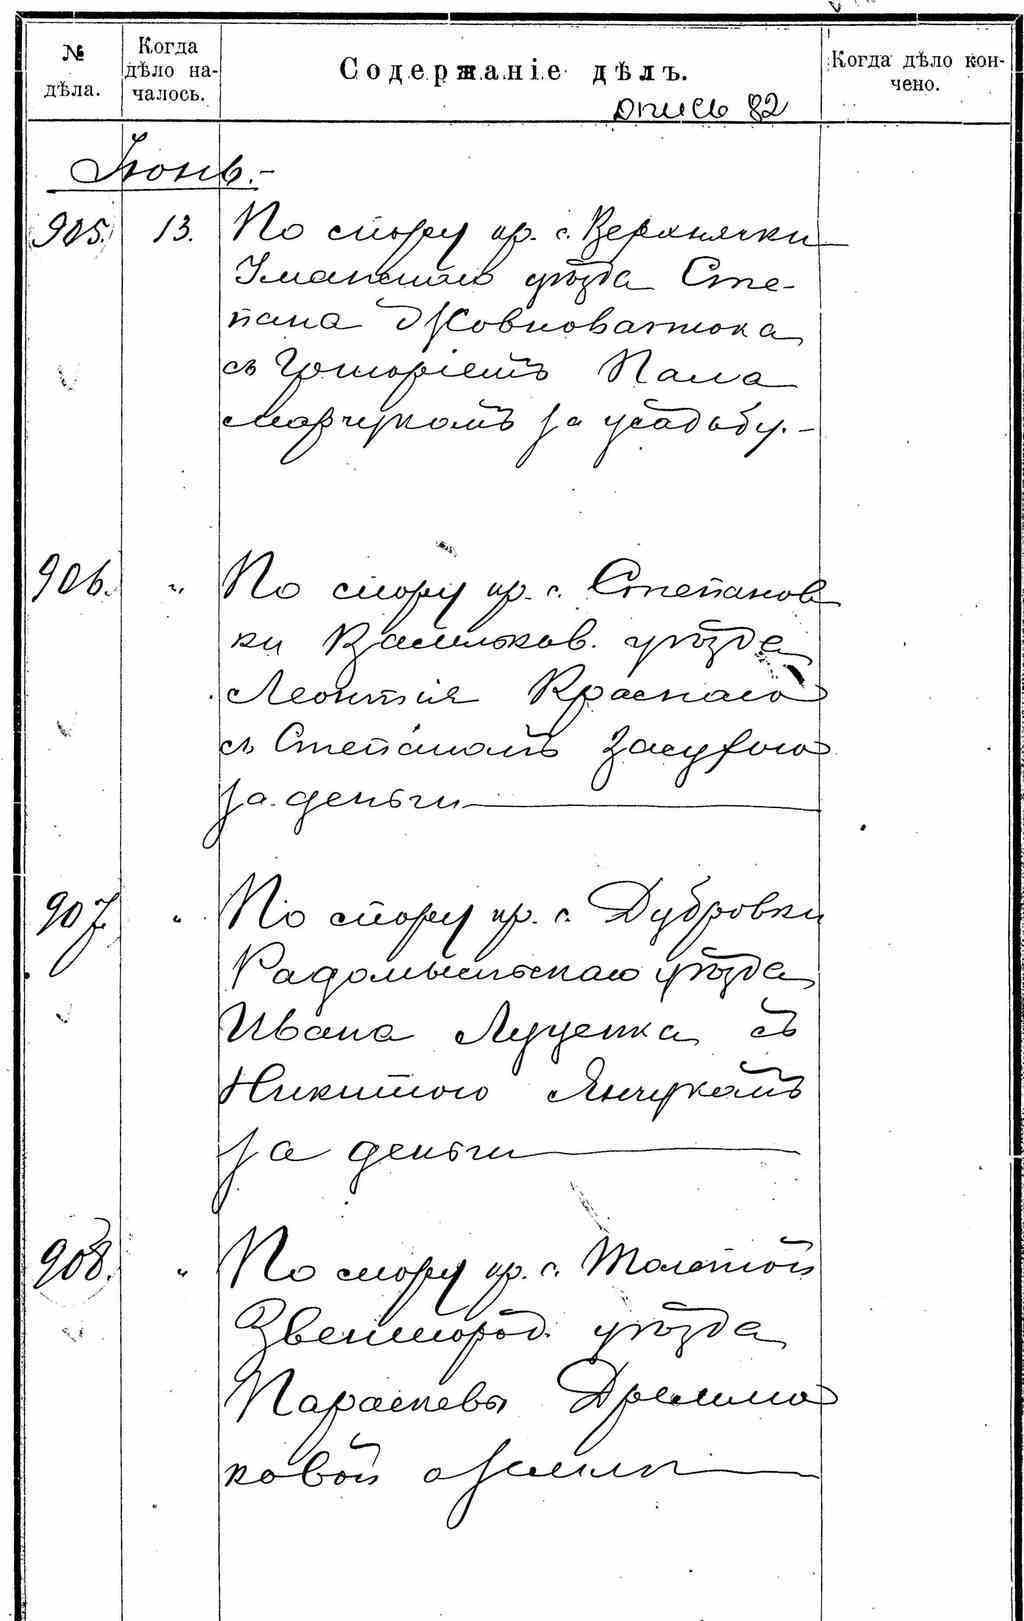 № дѣла.
Когда дѣло на-
чалось.
Содержаніе дѣлъ.
Когда дѣло кон-
чено.
опись 82
Іюнь.-
905. 13. По спору кр. с. Верхнячки
Уманскаго уѣзда Сте-
пана Жовноватюка
съ Григоріемъ Пала
марчукомъ за усадьбу.-
906. " По спору кр. с. Степанов
ки Васильков. уѣзда
Леонтія Краснаго
съ Степаномъ Засухою
за деньги
907. " По спору кр. с. Дубровки
Радомысльскаго уѣзда
Ивана Луценка съ
Никитою Янчукомъ
за деньги
908. " По спору кр. с. Толстой
Звенигород. уѣзда
Параскевы
ковой о землѣ